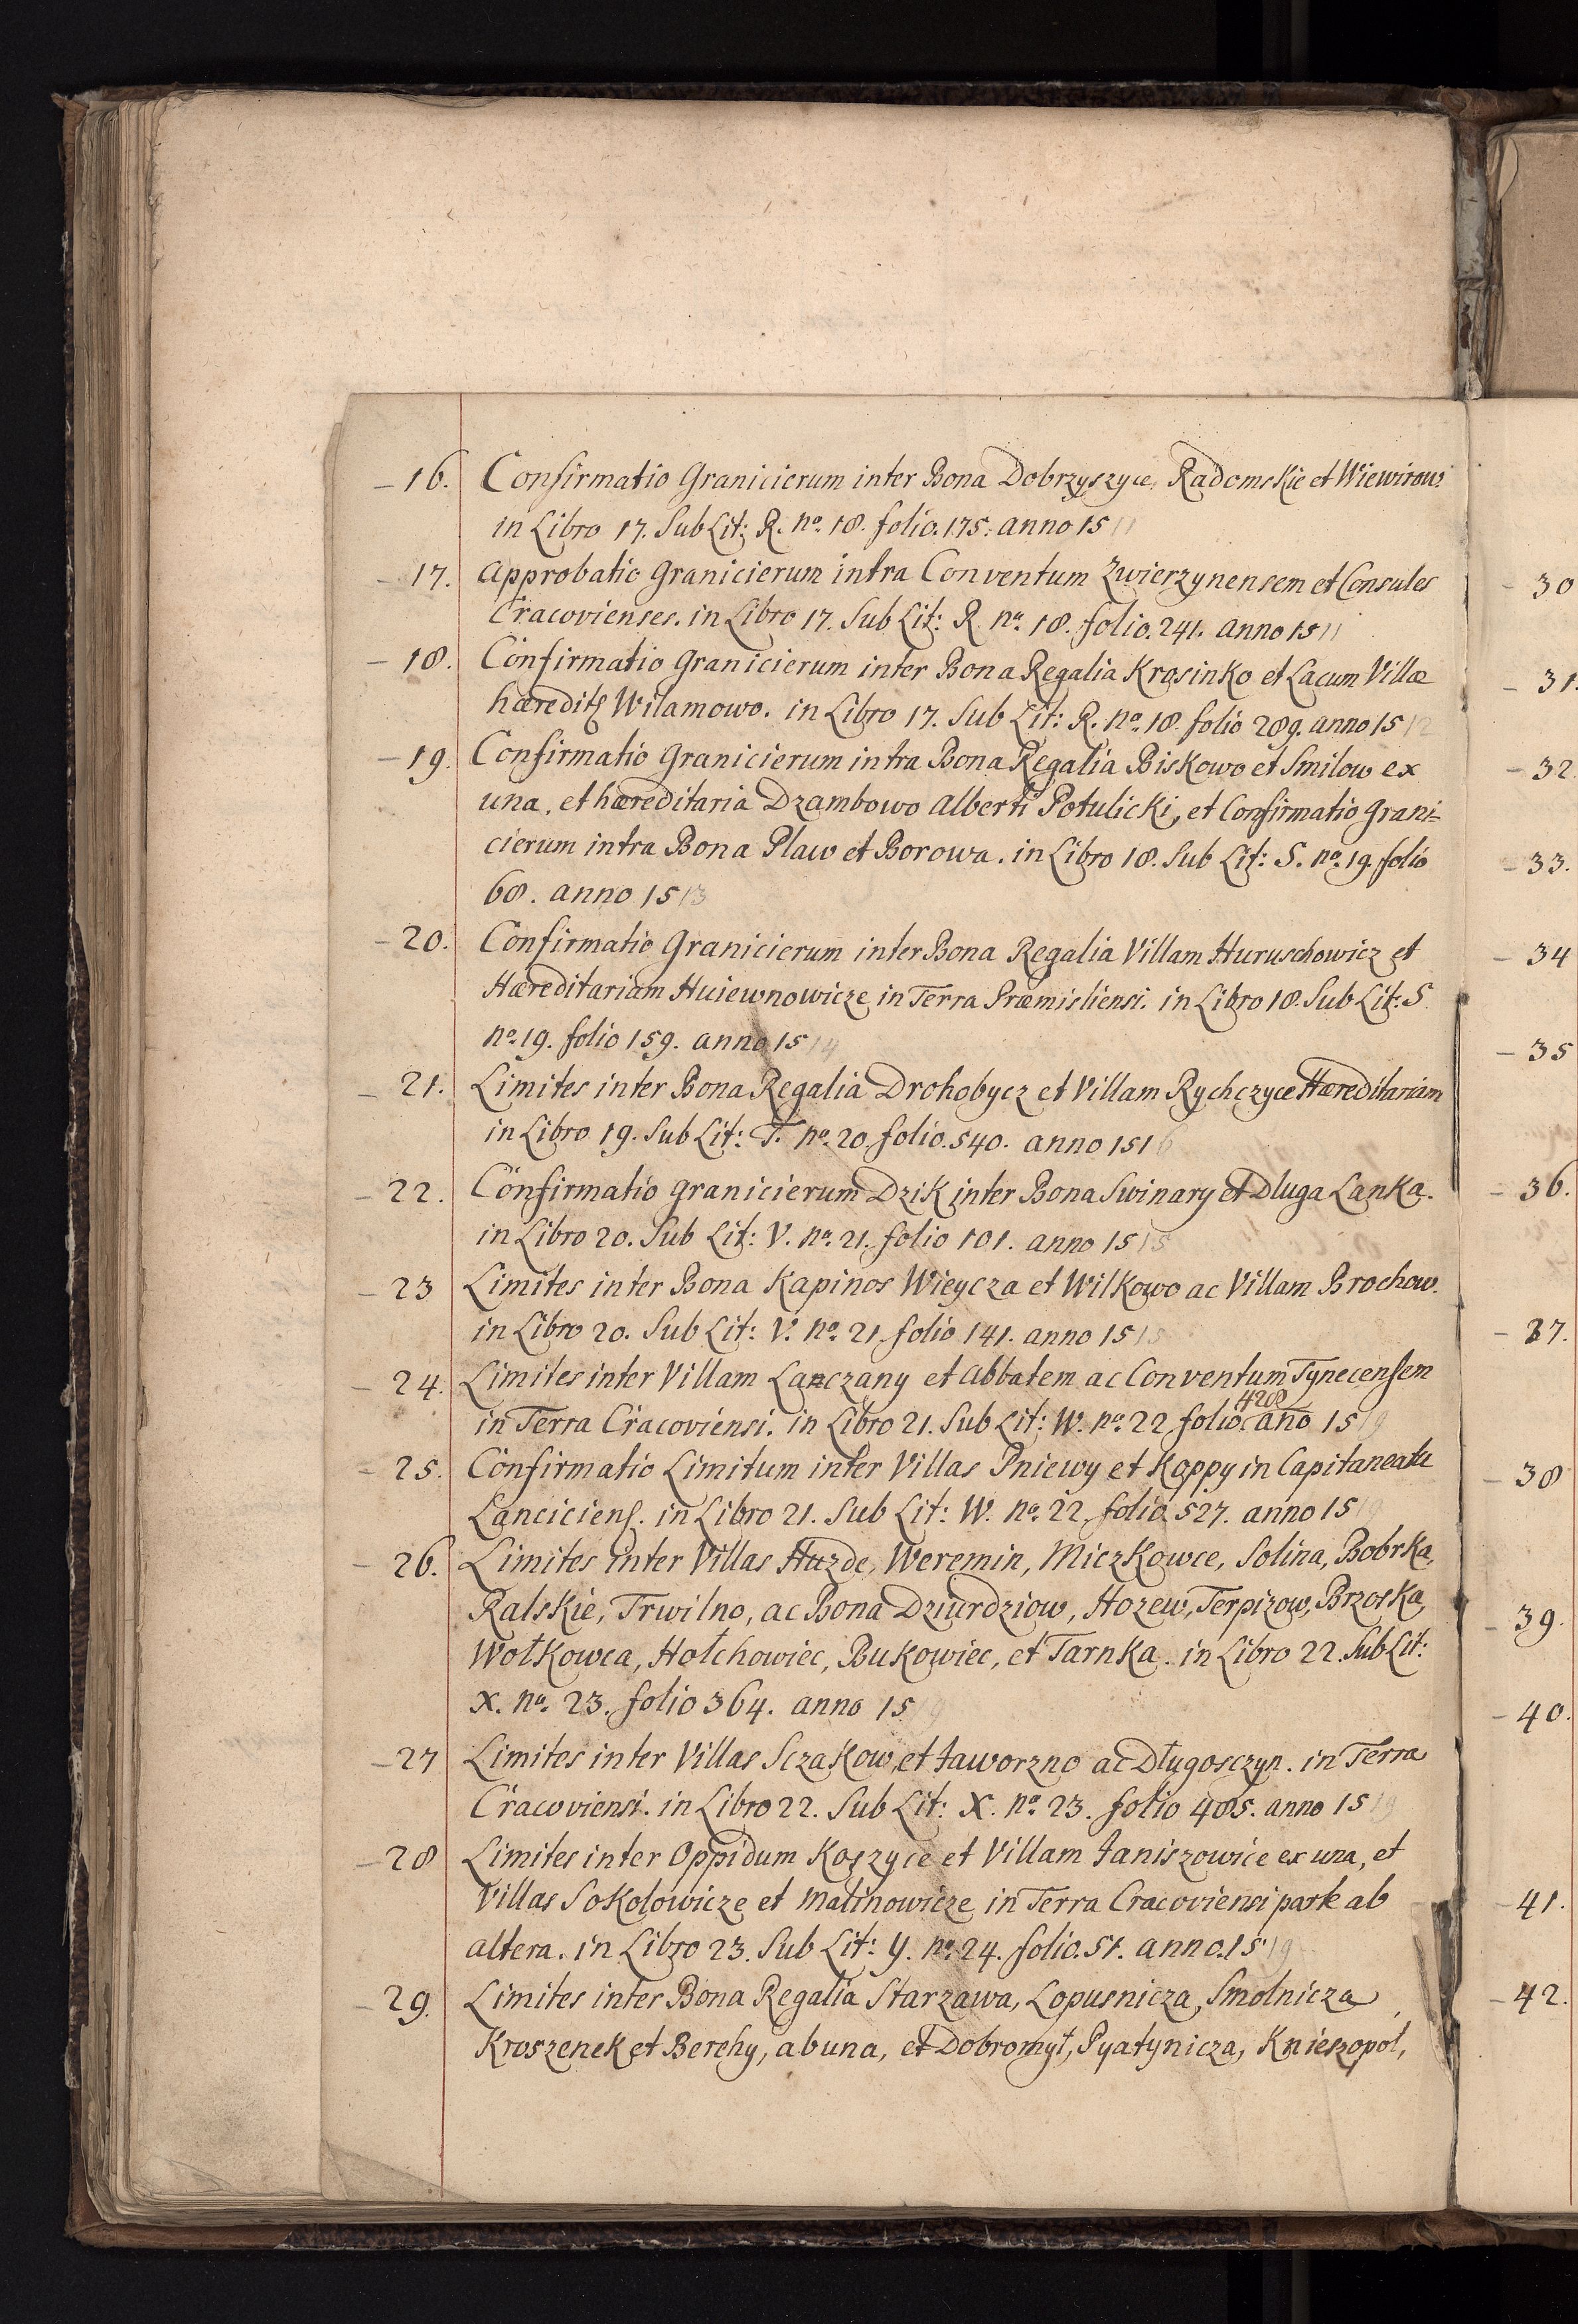 16. Confirmatio Granicierum inter Bona Dobrzyszyce, Radomskie et Wiewirow
in Libro 17. Sub Lit: R. no. 18. folio. 175. anno 1511
17. Approbatio Granicierum intra Conventum Zwierzynensem et Consules
Cracovienses. in Libro 17. Sub Lit: R. no. 18. folio. 241. anno 1511
18. Confirmatio Granicierum inter Bona Regalia Krosinko et Lacum Villæ
hæredits Wilamowo. in Libro 17. Sub Lit: R. no. 18. folio 289. anno 1512
19. Confirmatio Granicierum intra Bona Regalia Biskowo et Smilow ex
una, et hæreditaria Dzambowo Alberti Potulicki, et Confirmatio Grani=
cierum intra Bona Plaw et Borowa. in Libro 18. Sub Lit: S. no. 19. folio
68. anno 1513
20. Confirmatio Granicierum inter Bona Regalia Villam Huruschowicz et
Hæreditariam Huiewnowicze in Terra Præmisliensi. in Libro 18. Sub Lit: S
no. 19. folio 159. anno 1514
21. Limites inter Bona Regalia Drohobycz et Villam Rychczyce Hæreditariam
in Libro 19. Sub Lit: T. no. 20. folio. 540. anno 1516
22. Confirmatio granicierum Dzik inter Bona Swinary et Dluga Lanka.
in Libro 20. Sub Lit: V. no. 21. folio 101. anno 1515
23 Limites inter Bona Kapinos Wieycza et Wilkowo ac Villam Brochow.
in Libro 20. Sub Lit: V. no. 21. folio 141. anno 1515
24. Limites inter Villam Lanczany et Abbatem ac Conventum Tynecensem
in Terra Cracoviensi. in Libro 21. Sub Lit: W. no. 22 folio 4208 año 1519
25. Confirmatio Limitum inter Villas Pniewy et Koppy in Capitaneatu
Lanciciens. in Libro 21. Sub Lit: W. no. 22. folio 527. anno 1519
26. Limites inter Villas Huzde, Weremin, Miczkowce, Solina, Bobrka,
Ralskie, Trwilno, ac Bona Dziurdziow, Hozew, Terpizow, Brzoska,
Wołkowca, Hołchowiec, Bukowiec, et Tarnka. in Libro 22. Sub Lit:
X. no. 23. folio 364. anno 1519
27 Limites inter Villas Sczakow, et Jaworzno ac Długosczyn. in Terra
Cracoviensi. in Libro 22. Sub Lit: X. no. 23. folio 405. anno 1519
28 Limites inter Oppidum Koszyce et Villam Janiszowice ex una, et
Villas Sokolowicze et Malinowicze in Terra Cracoviensi parte ab
altera. in Libro 23. Sub Lit: Y. no. 24. folio. 51. anno. 1519
29. Limites inter Bona Regalia Starzawa, Lopusnicza, Smolnicza,
Kroszenek et Berehy, ab una, et Dobromył, Pyatynicza, Knieszopol,
30
31.
32.
33.
34
35
36.
37.
38
39.
40.
41.
42.